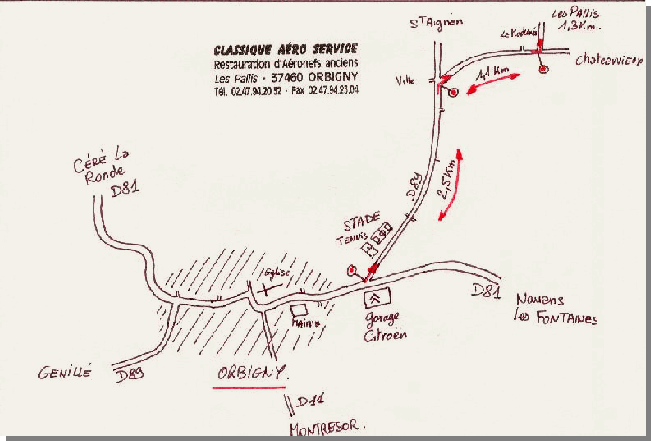 CLASSIQUE AÉRO SERVICE
Restauration d'Aéronefs anciens
Les Pallis - 37460 ORBIGNY
Tél. 02.47.94.20.52 - Fax 02.47.94.23.04
St Aignan
Les Pallis
1,3 Km.
Chateauvieux
1,1 Km
Ville
Céré La
Ronde
D81
D89
2,5 Km
STADE
TENNIS
Eglise
Mairie
garage
Citroën
D81
Nouans
Les FONTAINES
GENILLÉ
D89
ORBIGNY.
D11
MONTRESOR.